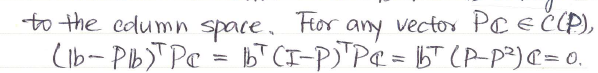 to the column space. For any vector Pc ∈ C(P),
(b - Pb)ᵀPc = bᵀ(I-P)ᵀPc = bᵀ(P-P²)c = 0.